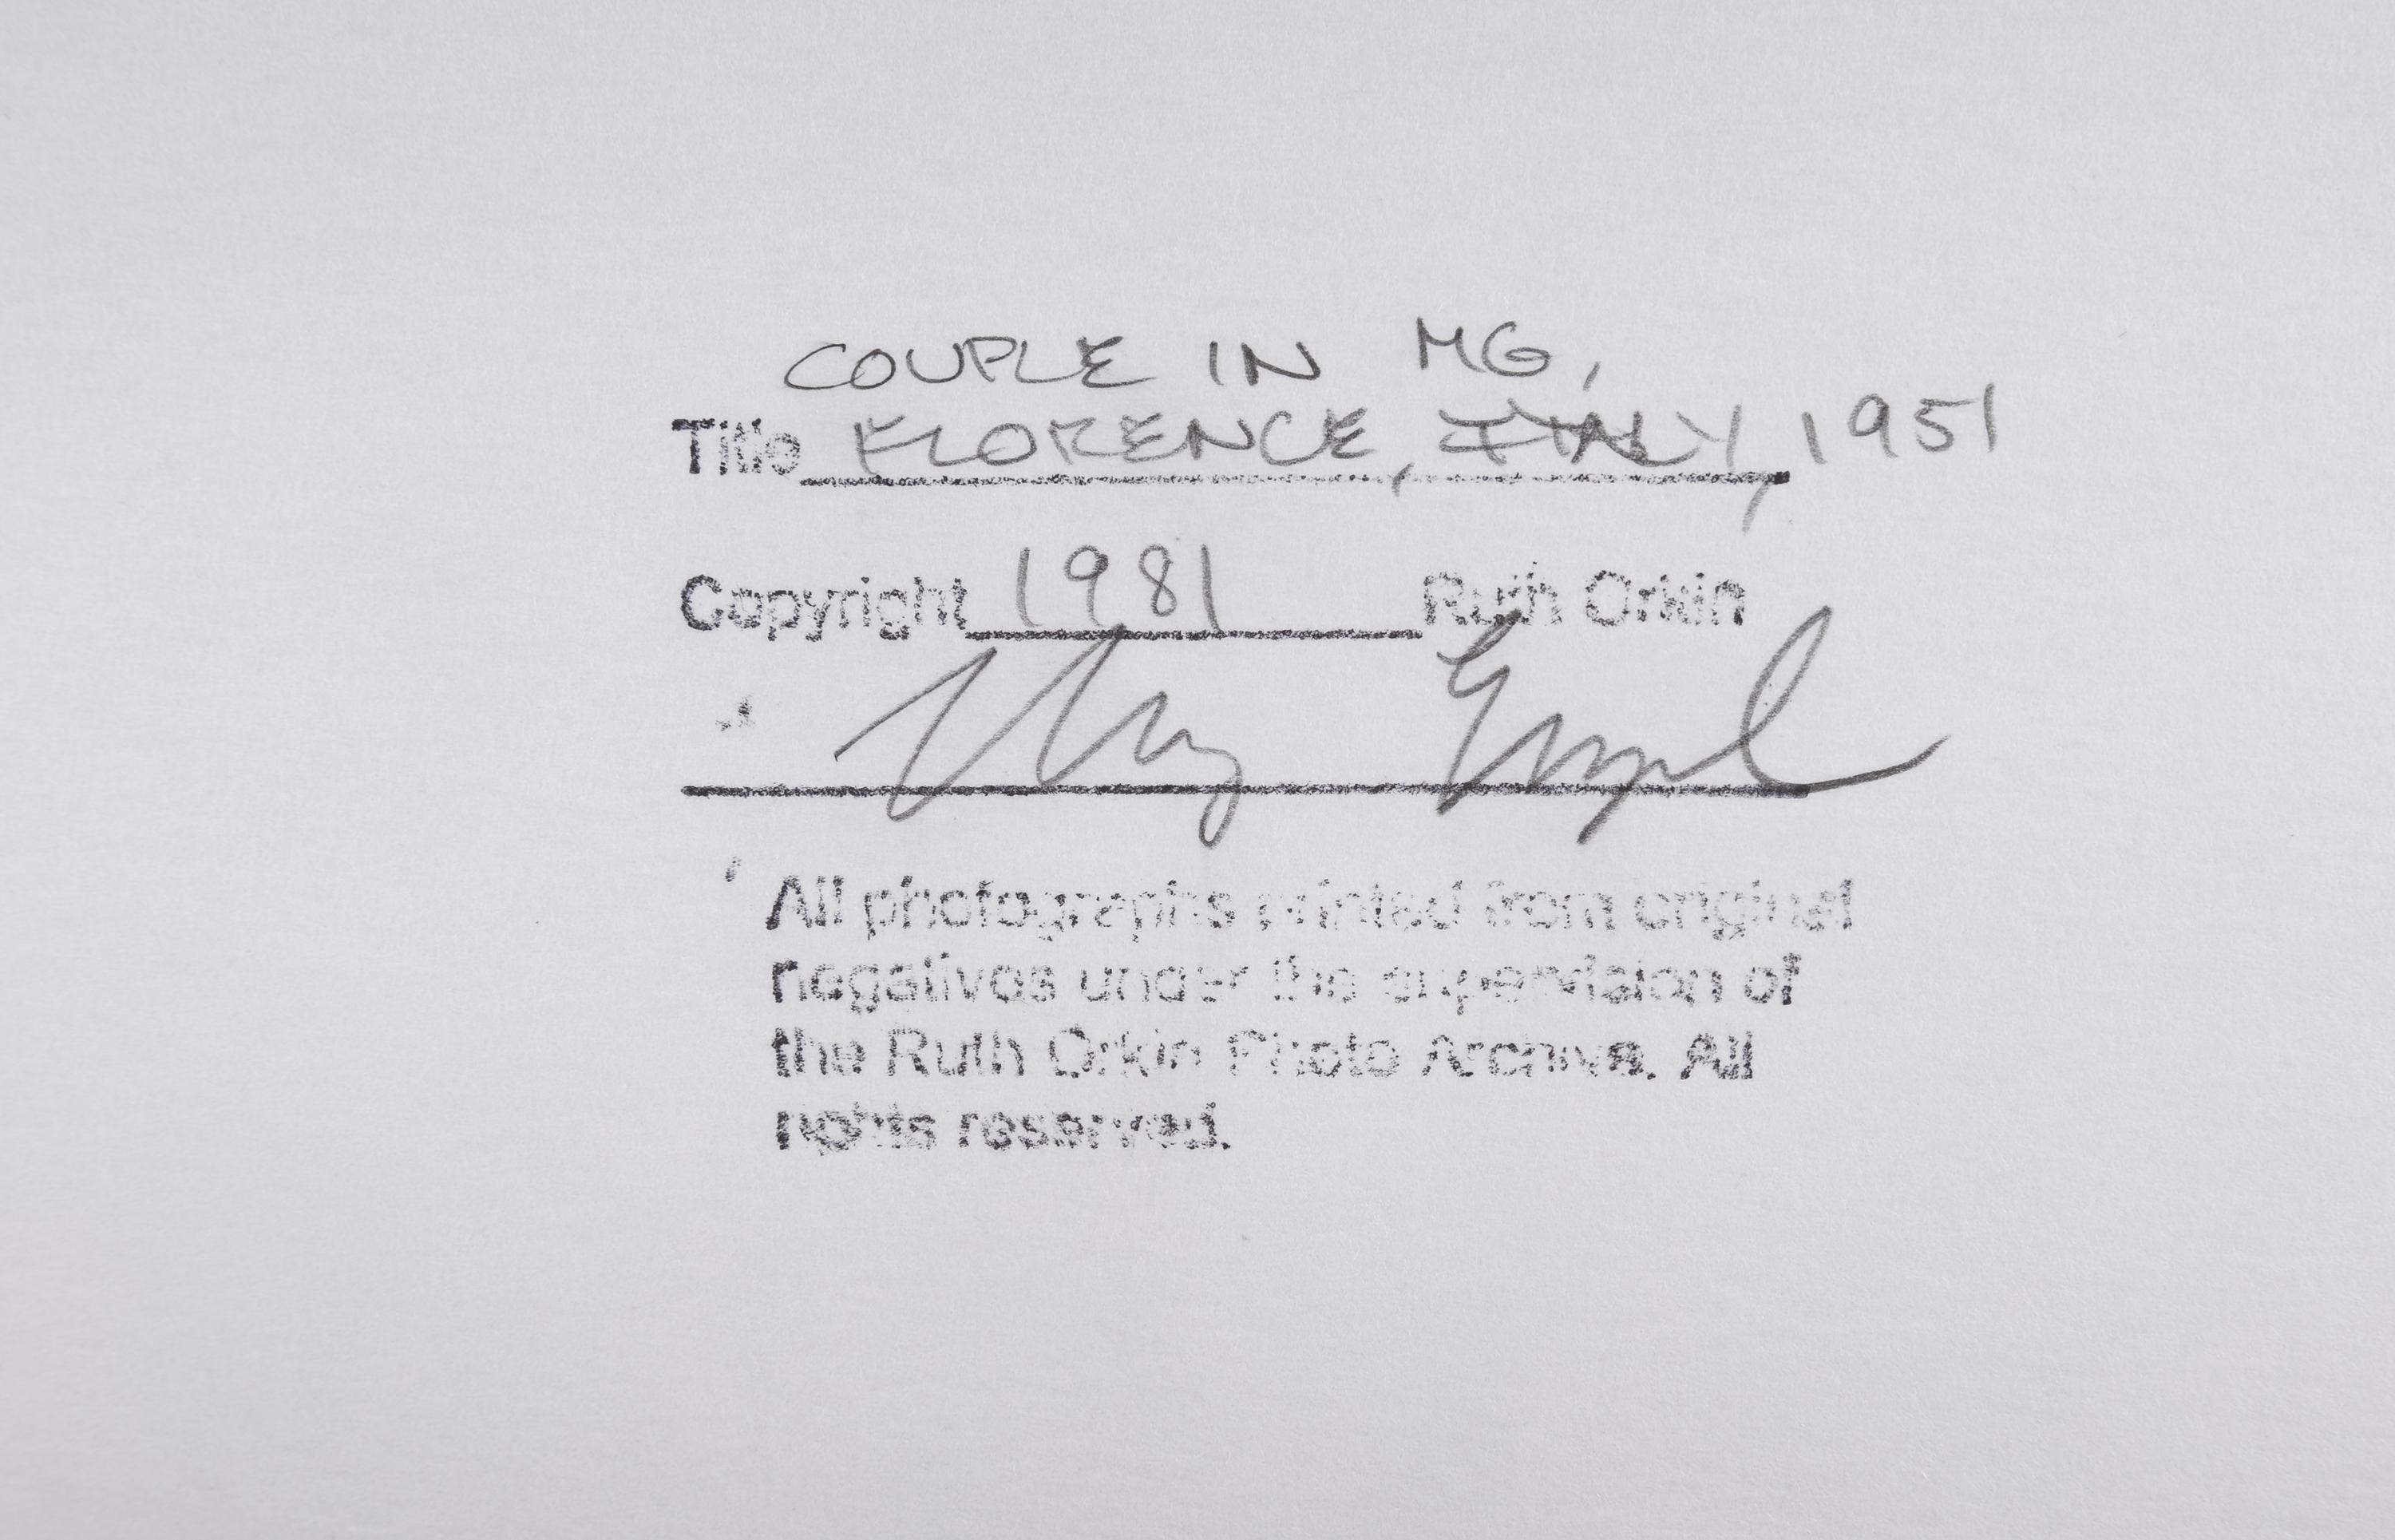 COUPLE IN MG,
Title FLORENCE, ITALY, 1951
Copyright 1981 Ruth Orkin
Mary Engel
All photographs printed from original
negatives under the supervision of
the Ruth Orkin Photo Archive. All
rights reserved.